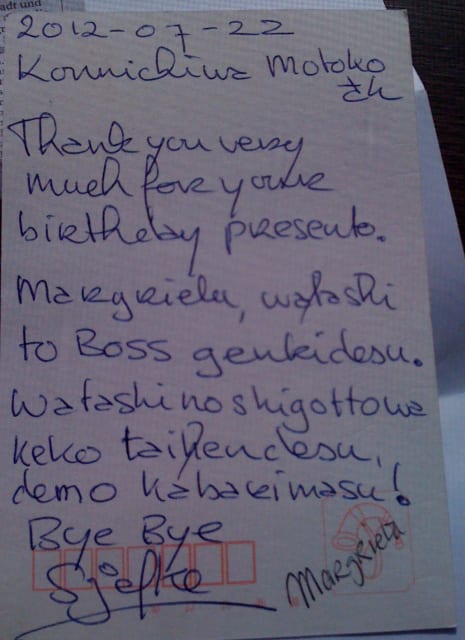 adt und
2012-07-22
Konnichiwa Motoko
Thank you very
much for your
birthday presento.
Margriela, watashi
to Boss genkidesu.
Watashi no shigottowa
keko taihendesu,
demo kabarimasu!
Bye Bye
Sjefke
Margrieta